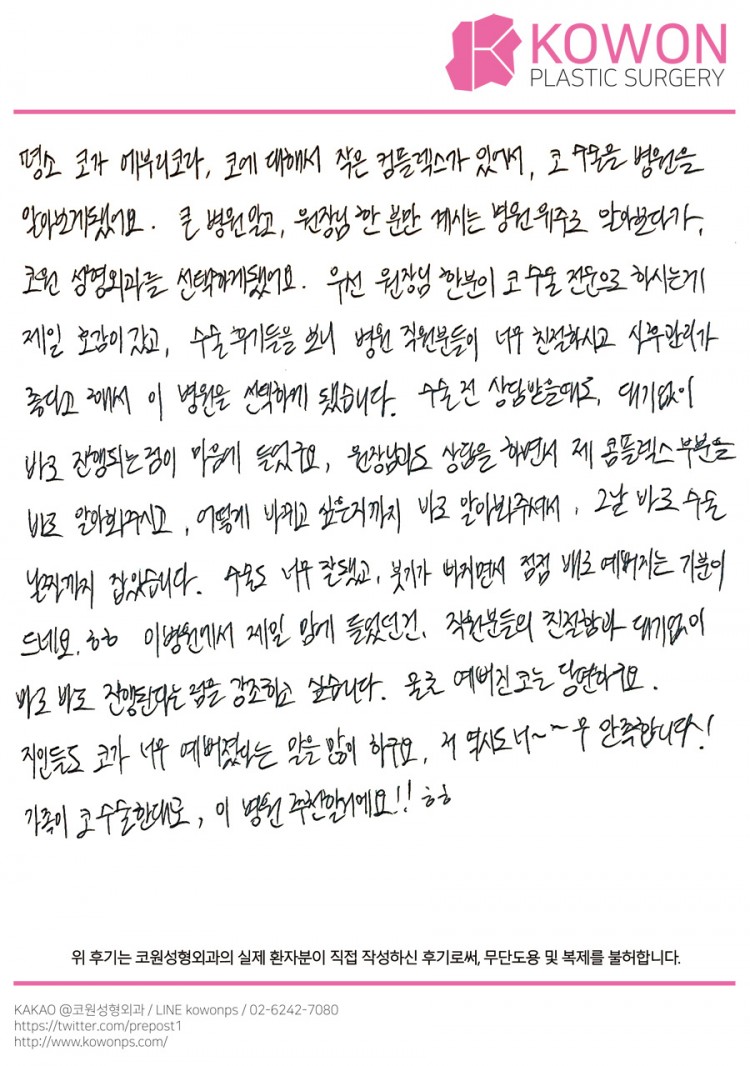 KOWON
PLASTIC SURGERY
평소 코가 메부리코라, 코에 대해서 작은 컴플렉스가 있어서, 코 수술을 병원을
알아보게됐어요. 큰 병원말고, 원장님 한 분만 계시는 병원위주로 알아보다가,
코원 성형외과를 선택하게됐어요. 우선 원장님 한분의 코 수술 전문으로 하시는게
제일 호감이 갔고, 수술 후기들을 보니 병원 직원분들이 너무 친절하시고 사후관리가
좋다고 해서 이 병원을 선택하게 됐습니다. 수술 전 상담받을때도, 대기없이
바로 진행되는점이 마음에 들었구요, 원장님과도 상담을 하면서 제 콤플렉스부분을
바로 알아봐주시고, 어떻게 바뀌고 싶은지까지 바로 알아봐주셔서, 그날 바로 수술
날짜까지 잡았습니다. 수술도 너무 잘됐고, 붓기가 빠지면서 점점 배로 예뻐지는 기분이
드네요.ㅎㅎ 이병원에서 제일 맘에 들었던건, 직원분들의 친절함과 대기없이
바로 바로 진행된다는 점을 강조하고 싶습니다. 물론 예뻐진코는 당연하구요.
지인들도 코가 너무 예뻐졌다는 말을 많이 하구요, 저 역시도 너~~무 만족합니다!
가족이 코수술한대도, 이 병원 추천할거에요!! ㅎㅎ
위 후기는 코원성형외과의 실제 환자분이 직접 작성하신 후기로써, 무단도용 및 복제를 불허합니다.
KAKAO @코원성형외과 / LINE kowonps / 02-6242-7080
https://twitter.com/prepost1
http://www.kowonps.com/